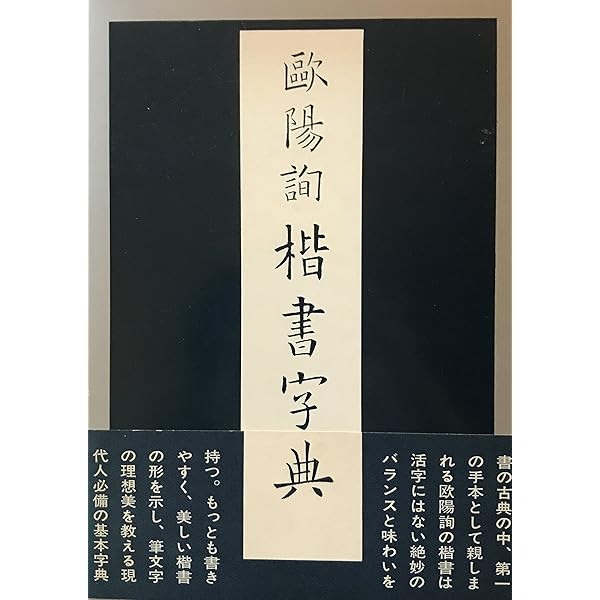 歐陽詢楷書字典
書の古典の中、第一
の手本として親しま
れる欧陽詢の楷書は
活字にはない絶妙の
バランスと味わいを
持つ。もっとも書き
やすく、美しい楷書
の形を示し、筆文字
の理想美を教える現
代人必備の基本字典